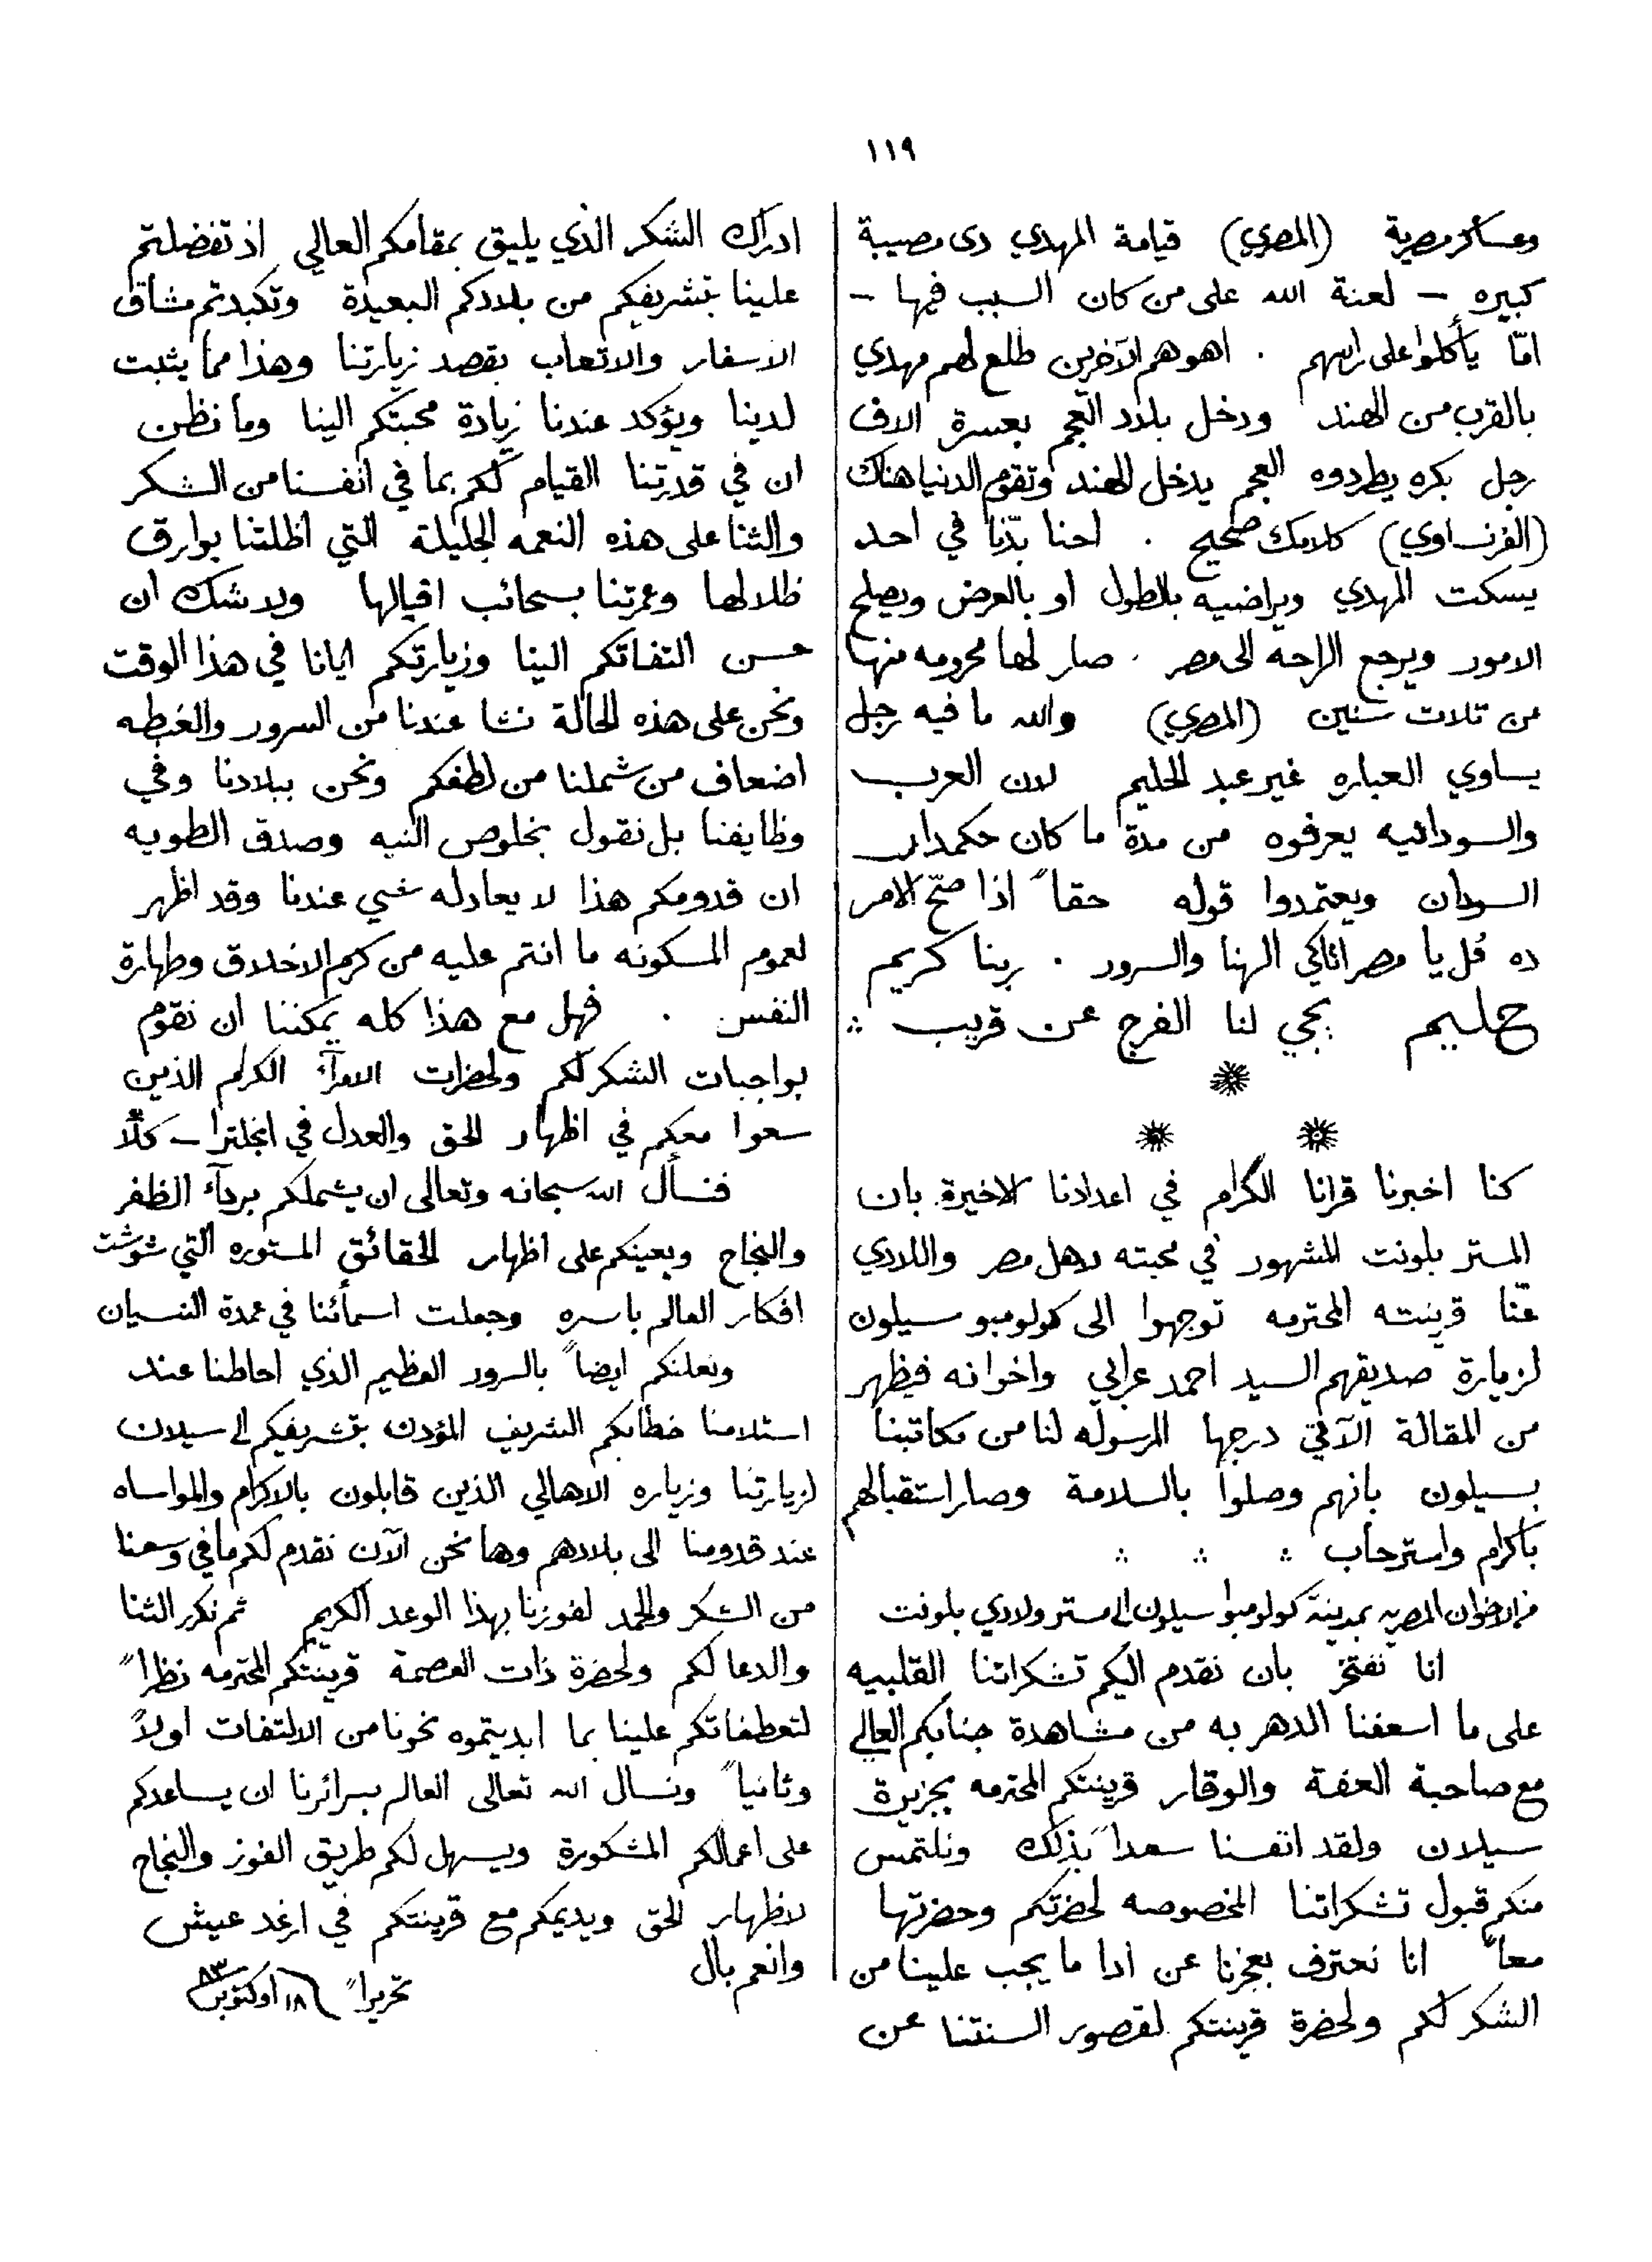 ١١٩
وعساكر مصرية (المصري) قيامة المهدي دى مصيبة
كبيره – لعنة الله على من كان السبب فيها –
امّا يأكلوا على راسهم . اهو هم الآخرين طلع لهم مهدي
بالقرب من الهند ودخل بلاد العجم بعسرة الاف
رجل بكره يطردوه العجم يدخل الهند وتقوم الدنيا هناك
(الفرنساوي) كلامك صحيح . احنا بدّنا في احد
يسكت المهدي ويراضيه بالطول او بالعرض ويصلح
الامور ويرجع الراحه الى مصر . صار لها محرومه منها
من تلات سنين (المصري) والله ما فيه رجل
يساوي العباره غير عبد الحليم لان العرب
والسودانيه يعرفوه من مدة ما كان حكمدار
السودان ويعتمدوا قوله حقاً اذا صحّ الامر
ده قُل يا مصر اتاكي الهنا والسرور . ربنا كريم
حليم يجي لنا الفرج عن قريب
كنا اخبرنا قرانا الكرام في اعدادنا الاخيرة بان
المستر بلونت المشهور في محبته لاهل مصر واللادي
عنّا قرينته المحترمه توجهوا الى كولومبو سيلون
لزيارة صديقهم السيد احمد عرابي واخوانه فيظهر
من المقالة الآتي درجها المرسوله لنا من مكاتبنا
بسيلون بانهم وصلوا بالسلامة وصار استقبالهم
باكرام واسترحاب
من الاخوان المصريه بمدينة كولومبو سيلون الى مستر ولادي بلونت
انا نفتخر بان نقدم اليكم تشكراتنا القلبيه
على ما اسعفنا الدهر به من مشاهدة جنابكم العالي
مع صاحبة العفة والوقار قرينتكم المحترمه بجزيرة
سيلان ولقد اتفسنا سعداً بذلك ونلتمس
منكم قبول تشكراتنا المخصوصه لحضرتكم وحضرتها
معاً انا نعترف بعجزنا عن ادا ما يجب علينا من
الشكر لكم ولحضرة قرينتكم لقصور السنتنا عن
ادراك الشكر الذي يليق بمقامكم العالي اذ تفضلتم
علينا بتشريفكم من بلادكم البعيدة وتكبدتم مشاق
الاسفار والاتعاب بقصد زيارتنا وهذا مما يثبت
لدينا ويؤكد عندنا زيادة محبتكم الينا وما نظن
ان في قدرتنا القيام لكم بما في انفسنا من الشكر
والثنا على هذه النعمه الجليلة التي اظلتنا بوارق
ظلالها وعمرتنا بسحائب اقبالها ولا شك ان
حسن التفاتكم الينا وزيارتكم ايانا في هذا الوقت
ونحن على هذه الحالة نشا عندنا من السرور والغبطه
اضعاف من شملنا من لطفكم ونحن ببلادنا وفي
وظايفنا بل نقول بخلوص النيه وصدق الطويه
ان قدومكم هذا لا يعادله شي عندنا وقد اظهر
لعموم المسكونه ما انتم عليه من كرم الاخلاق وطهارة
النفس . فهل مع هذا كله يمكننا ان نقوم
بواجبات الشكر لكم ولحضرات الامرآء الكرام الذين
سعوا معكم في اظهار الحق والعدل في انجلترا – كلّا
فنسأل الله سبحانه وتعالى ان يشملكم بردآء الظفر
والنجاح ويعينكم على اظهار الحقائق المستوره التي شوشت
افكار العالم باسره وجعلت اسمأئنا في عمدة النسيان
ونعلنكم ايضاً بالسرور العظيم الذي احاطنا عند
استلامنا خطابكم الشريف المؤدن بتشريفكم الى سيلان
لزيارتنا وزياره الاهالي الذين قابلون بالاكرام والمواساه
عند قدومنا الى بلادهم وها نحن الآن نقدم لكم ما في وسعنا
من الشكر والحمد لفوزنا بهذا الوعد الكريم ثم نكرر الثنا
والدعا لكم ولحضرة ذات العصمة قرينتكم المحترمه نظراً
لتعطفاتكم علينا بما ابديتموه نحونا من الالتفات اولاً
وثانياً ونسال الله تعالى العالم بسرائرنا ان يساعدكم
على اعمالكم المشكورة ويسهل لكم طريق الفوز والنجاح
لاظهار الحق ويديمكم مع قرينتكم في ارغد عيش
وانعم بال
تحريراً ١٨ اوكتوبر ٨٣